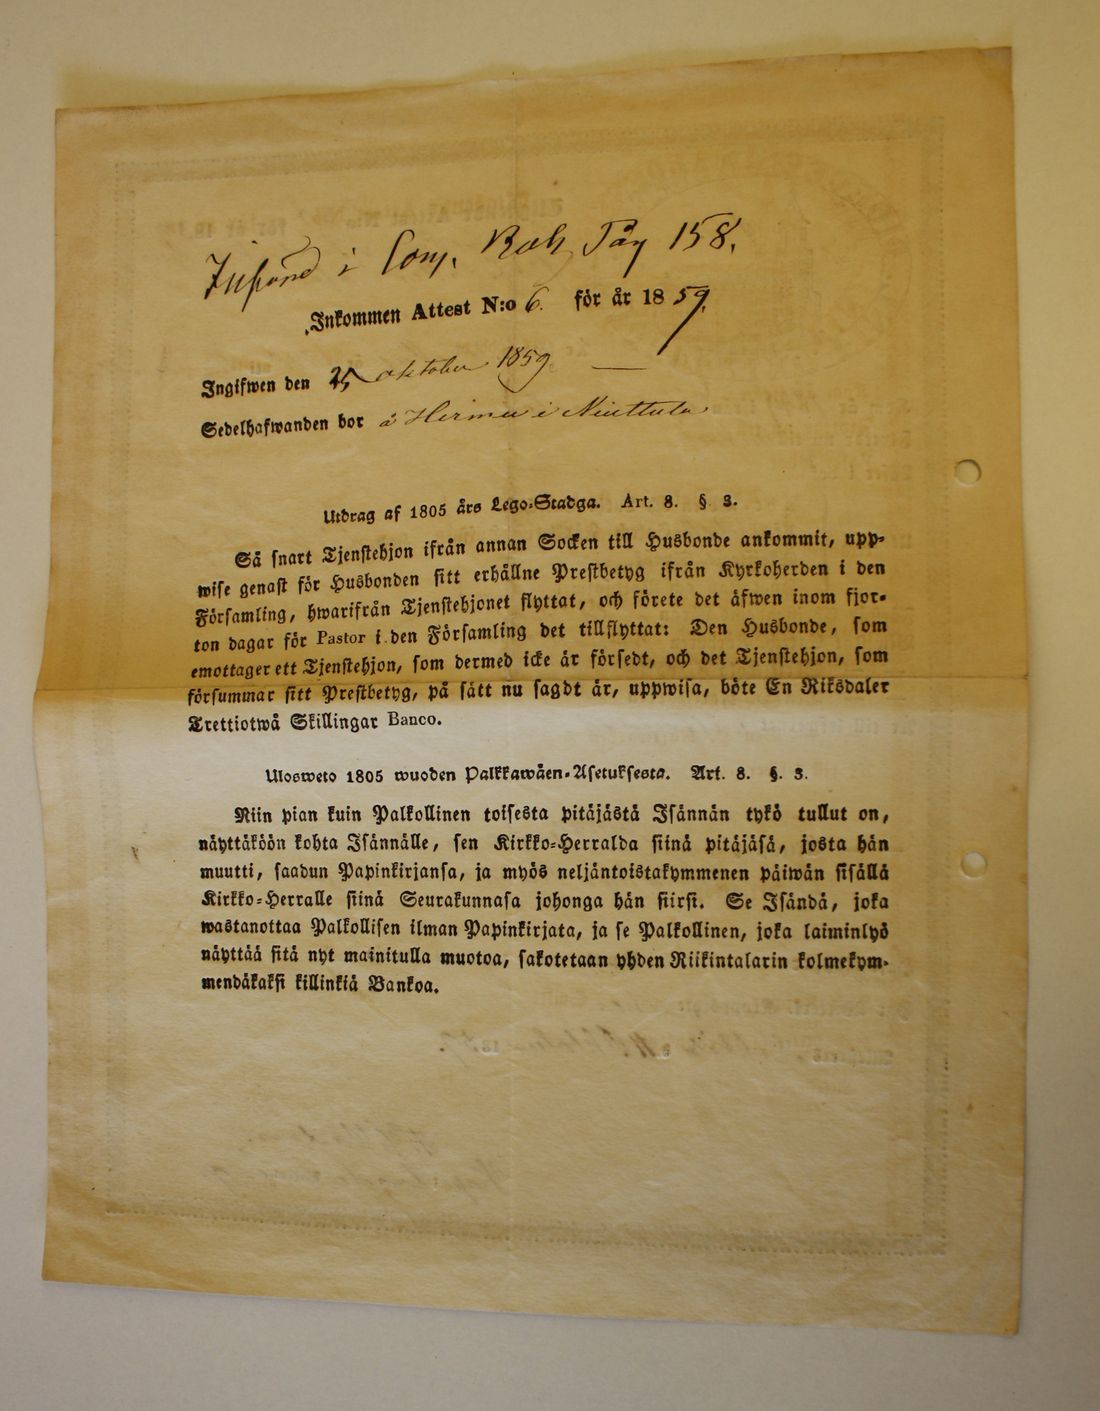 Införd i Com. Bok Pag 158.
Inkommen Attest N:o 6. för år 1859.
Ingifwen den 25 oktober 1859
Sedelhafwanden bor å Heimu i Niuttula
Utdrag af 1805 års Lego-Stadga. Art. 8. § 3.
Så snart Tjenstehjon ifrån annan Socken till Husbonde ankommit, upp-
wise genast för Husbonden sitt erhållne Prestbetyg ifrån Kyrkoherden i den
Församling, hwarifrån Tjenstehjonet flyttat, och förete det äfwen inom fjor-
ton dagar för Pastor i den Församling det tillflyttat: Den Husbonde, som
emottager ett Tjenstehjon, som dermed icke är försedt, och det Tjenstehjon, som
försummar sitt Prestbetyg, på sätt nu sagdt är, uppwisa, böte En Riksdaler
Trettiotwå Skillingar Banco.
Ulosweto 1805 wuoden Palkkawäen-Asetuksesta. Art. 8. §. 3.
Niin pian kuin Palkollinen toisesta pitäjästä Isännän tykö tullut on,
näyttäköön kohta Isännälle, sen Kirkko-Herralda siinä pitäjäsä, josta hän
muutti, saadun Papinkirjansa, ja myös neljäntoistakymmenen päiwän sisällä
Kirkko-Herralle siinä Seurakunnasa johonga hän siirsi. Se Isändä, joka
wastanottaa Palkollisen ilman Papinkirjata, ja se Palkollinen, joka laiminlyö
näyttää sitä nyt mainitulla muotoa, sakotetaan yhden Riikintalarin kolmekym-
mendäkaksi killinkiä Bankoa.